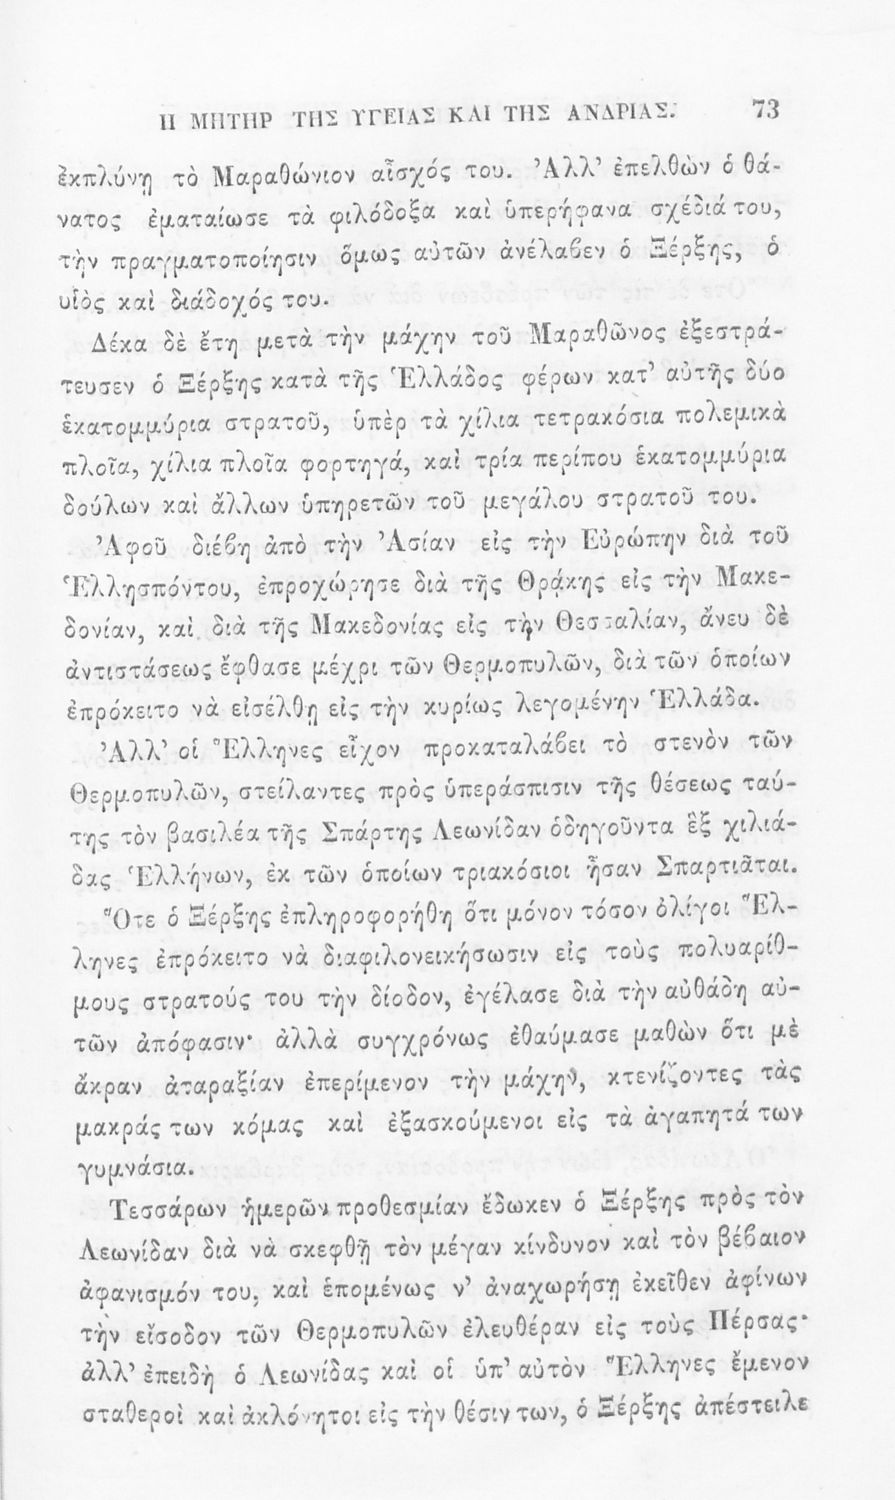 Η ΜΗΤΗΡ ΤΗΣ ΥΓΕΙΑΣ ΚΑΙ ΤΗΣ ΑΝΔΡΙΑΣ. 73
ἐκπλύνῃ τὸ Μαραθώνιον αἶσχός του. Ἀλλ’ ἐπελθὼν ὁ θά-
νατος ἐματαίωσε τὰ φιλόδοξα καὶ ὑπερήφανα σχέδιά του,
τὴν πραγματοποίησιν ὅμως αὐτῶν ἀνέλαβεν ὁ Ξέρξης, ὁ
υἱὸς καὶ διάδοχός του.
Δέκα δὲ ἔτη μετὰ τὴν μάχην τοῦ Μαραθῶνος ἐξεστρά-
τευσεν ὁ Ξέρξης κατὰ τῆς Ἑλλάδος φέρων κατ’ αὐτῆς δύο
ἑκατομμύρια στρατοῦ, ὑπὲρ τὰ χίλια τετρακόσια πολεμικὰ
πλοῖα, χίλια πλοῖα φορτηγά, καὶ τρία περίπου ἑκατομμύρια
δούλων καὶ ἄλλων ὑπηρετῶν τοῦ μεγάλου στρατοῦ του.
Ἀφοῦ διέβη ἀπὸ τὴν Ἀσίαν εἰς τὴν Εὐρώπην διὰ τοῦ
Ἑλλησπόντου, ἐπροχώρησε διὰ τῆς Θρᾴκης εἰς τὴν Μακε-
δονίαν, καὶ διὰ τῆς Μακεδονίας εἰς τὴν Θεσσαλίαν, ἄνευ δὲ
ἀντιστάσεως ἔφθασε μέχρι τῶν Θερμοπυλῶν, διὰ τῶν ὁποίων
ἐπρόκειτο νὰ εἰσέλθῃ εἰς τὴν κυρίως λεγομένην Ἑλλάδα.
Ἀλλ’ οἱ Ἕλληνες εἶχον προκαταλάβει τὸ στενὸν τῶν
Θερμοπυλῶν, στείλαντες πρὸς ὑπεράσπισιν τῆς θέσεως ταύ-
της τὸν βασιλέα τῆς Σπάρτης Λεωνίδαν ὁδηγοῦντα ἓξ χιλιά-
δας Ἑλλήνων, ἐκ τῶν ὁποίων τριακόσιοι ἦσαν Σπαρτιᾶται.
Ὅτε ὁ Ξέρξης ἐπληροφορήθη ὅτι μόνον τόσον ὀλίγοι Ἕλ-
ληνες ἐπρόκειτο νὰ διαφιλονεικήσωσιν εἰς τοὺς πολυαρίθ-
μους στρατούς του τὴν δίοδον, ἐγέλασε διὰ τὴν αὐθάδη αὐ-
τῶν ἀπόφασιν· ἀλλὰ συγχρόνως ἐθαύμασε μαθὼν ὅτι μὲ
ἄκραν ἀταραξίαν ἐπερίμενον τὴν μάχην, κτενίζοντες τὰς
μακράς των κόμας καὶ ἐξασκούμενοι εἰς τὰ ἀγαπητά των
γυμνάσια.
Τεσσάρων ἡμερῶν προθεσμίαν ἔδωκεν ὁ Ξέρξης πρὸς τὸν
Λεωνίδαν διὰ νὰ σκεφθῇ τὸν μέγαν κίνδυνον καὶ τὸν βέβαιον
ἀφανισμόν του, καὶ ἑπομένως ν’ ἀναχωρήσῃ ἐκεῖθεν ἀφίνων
τὴν εἴσοδον τῶν Θερμοπυλῶν ἐλευθέραν εἰς τοὺς Πέρσας·
ἀλλ’ ἐπειδὴ ὁ Λεωνίδας καὶ οἱ ὑπ’ αὐτὸν Ἕλληνες ἔμενον
σταθεροὶ καὶ ἀκλόνητοι εἰς τὴν θέσιν των, ὁ Ξέρξης ἀπέστειλε